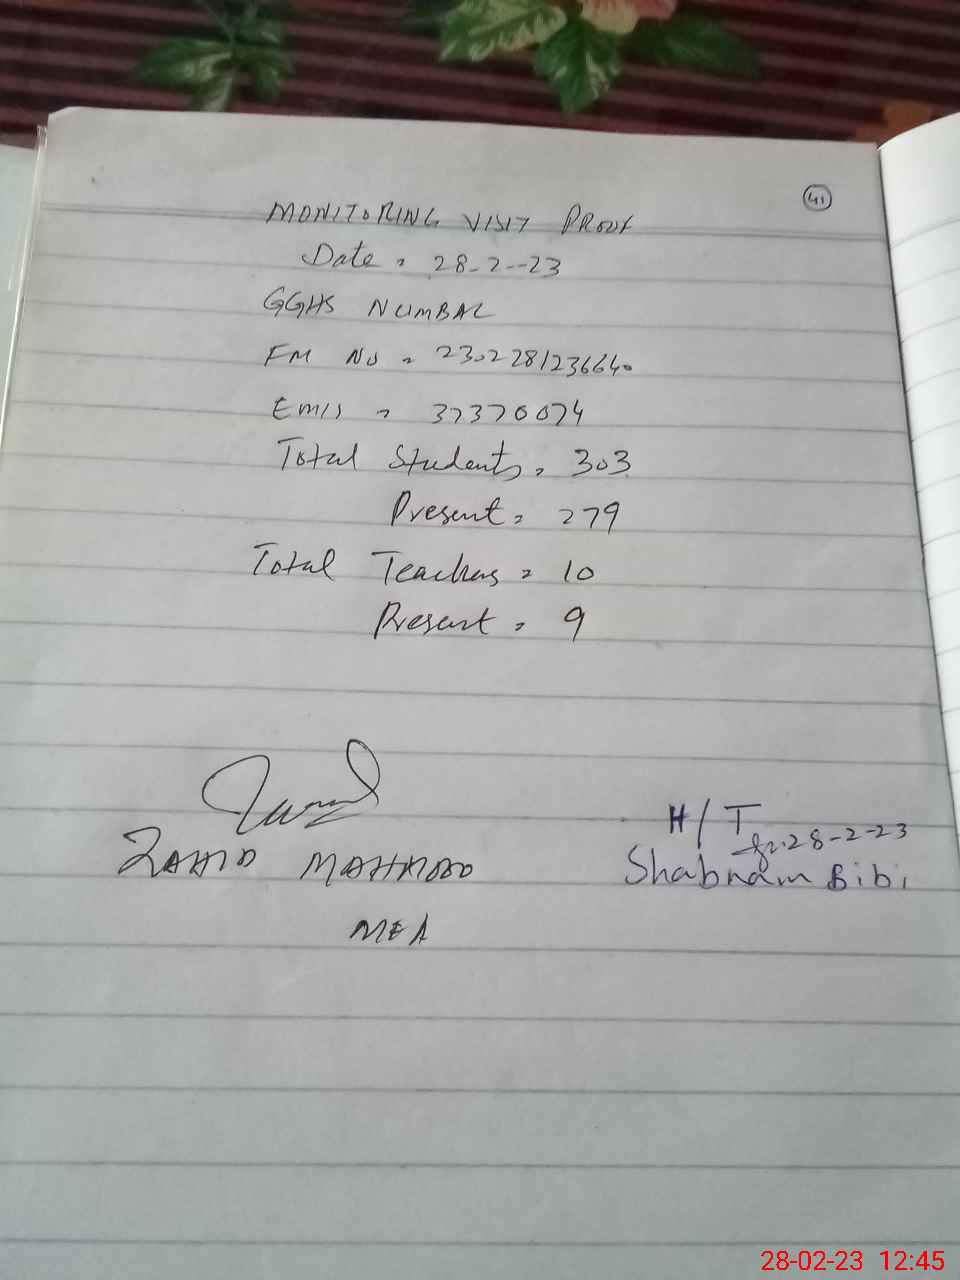 41
MONITORING VISIT PROOF
Date = 28-2-23
GGHS NUMBAL
FM NO = 230228123664
EMIS = 37370074
Total Students = 303
Present = 279
Total Teachers = 10
Present = 9
H/T
28-2-23
ZAHID MAHMOOD
Shabnam Bibi
MEA
28-02-23 12:45